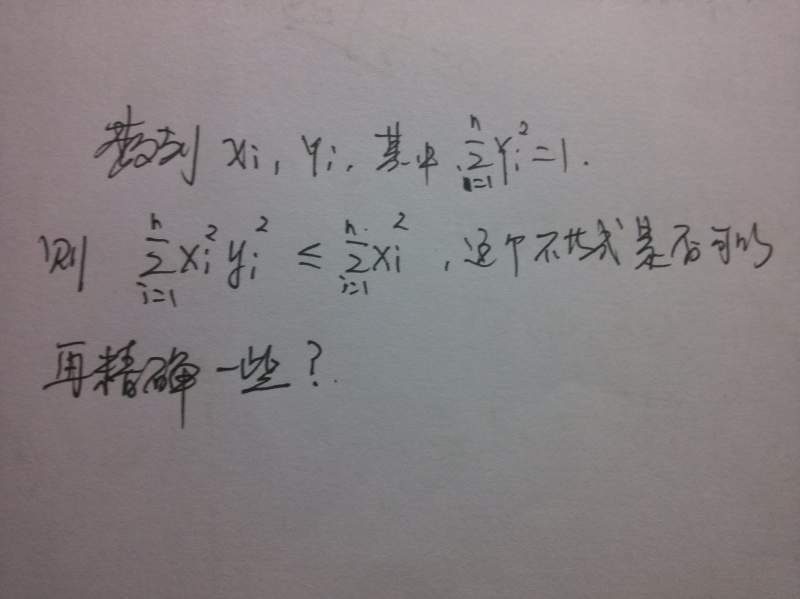 数列 xi, yi, 其中 \sum_{i=1}^{n} yi² = 1.
则 \sum_{i=1}^{n} xi² yi² ≤ \sum_{i=1}^{n} xi², 这个不等式是否可以
再精确一些?